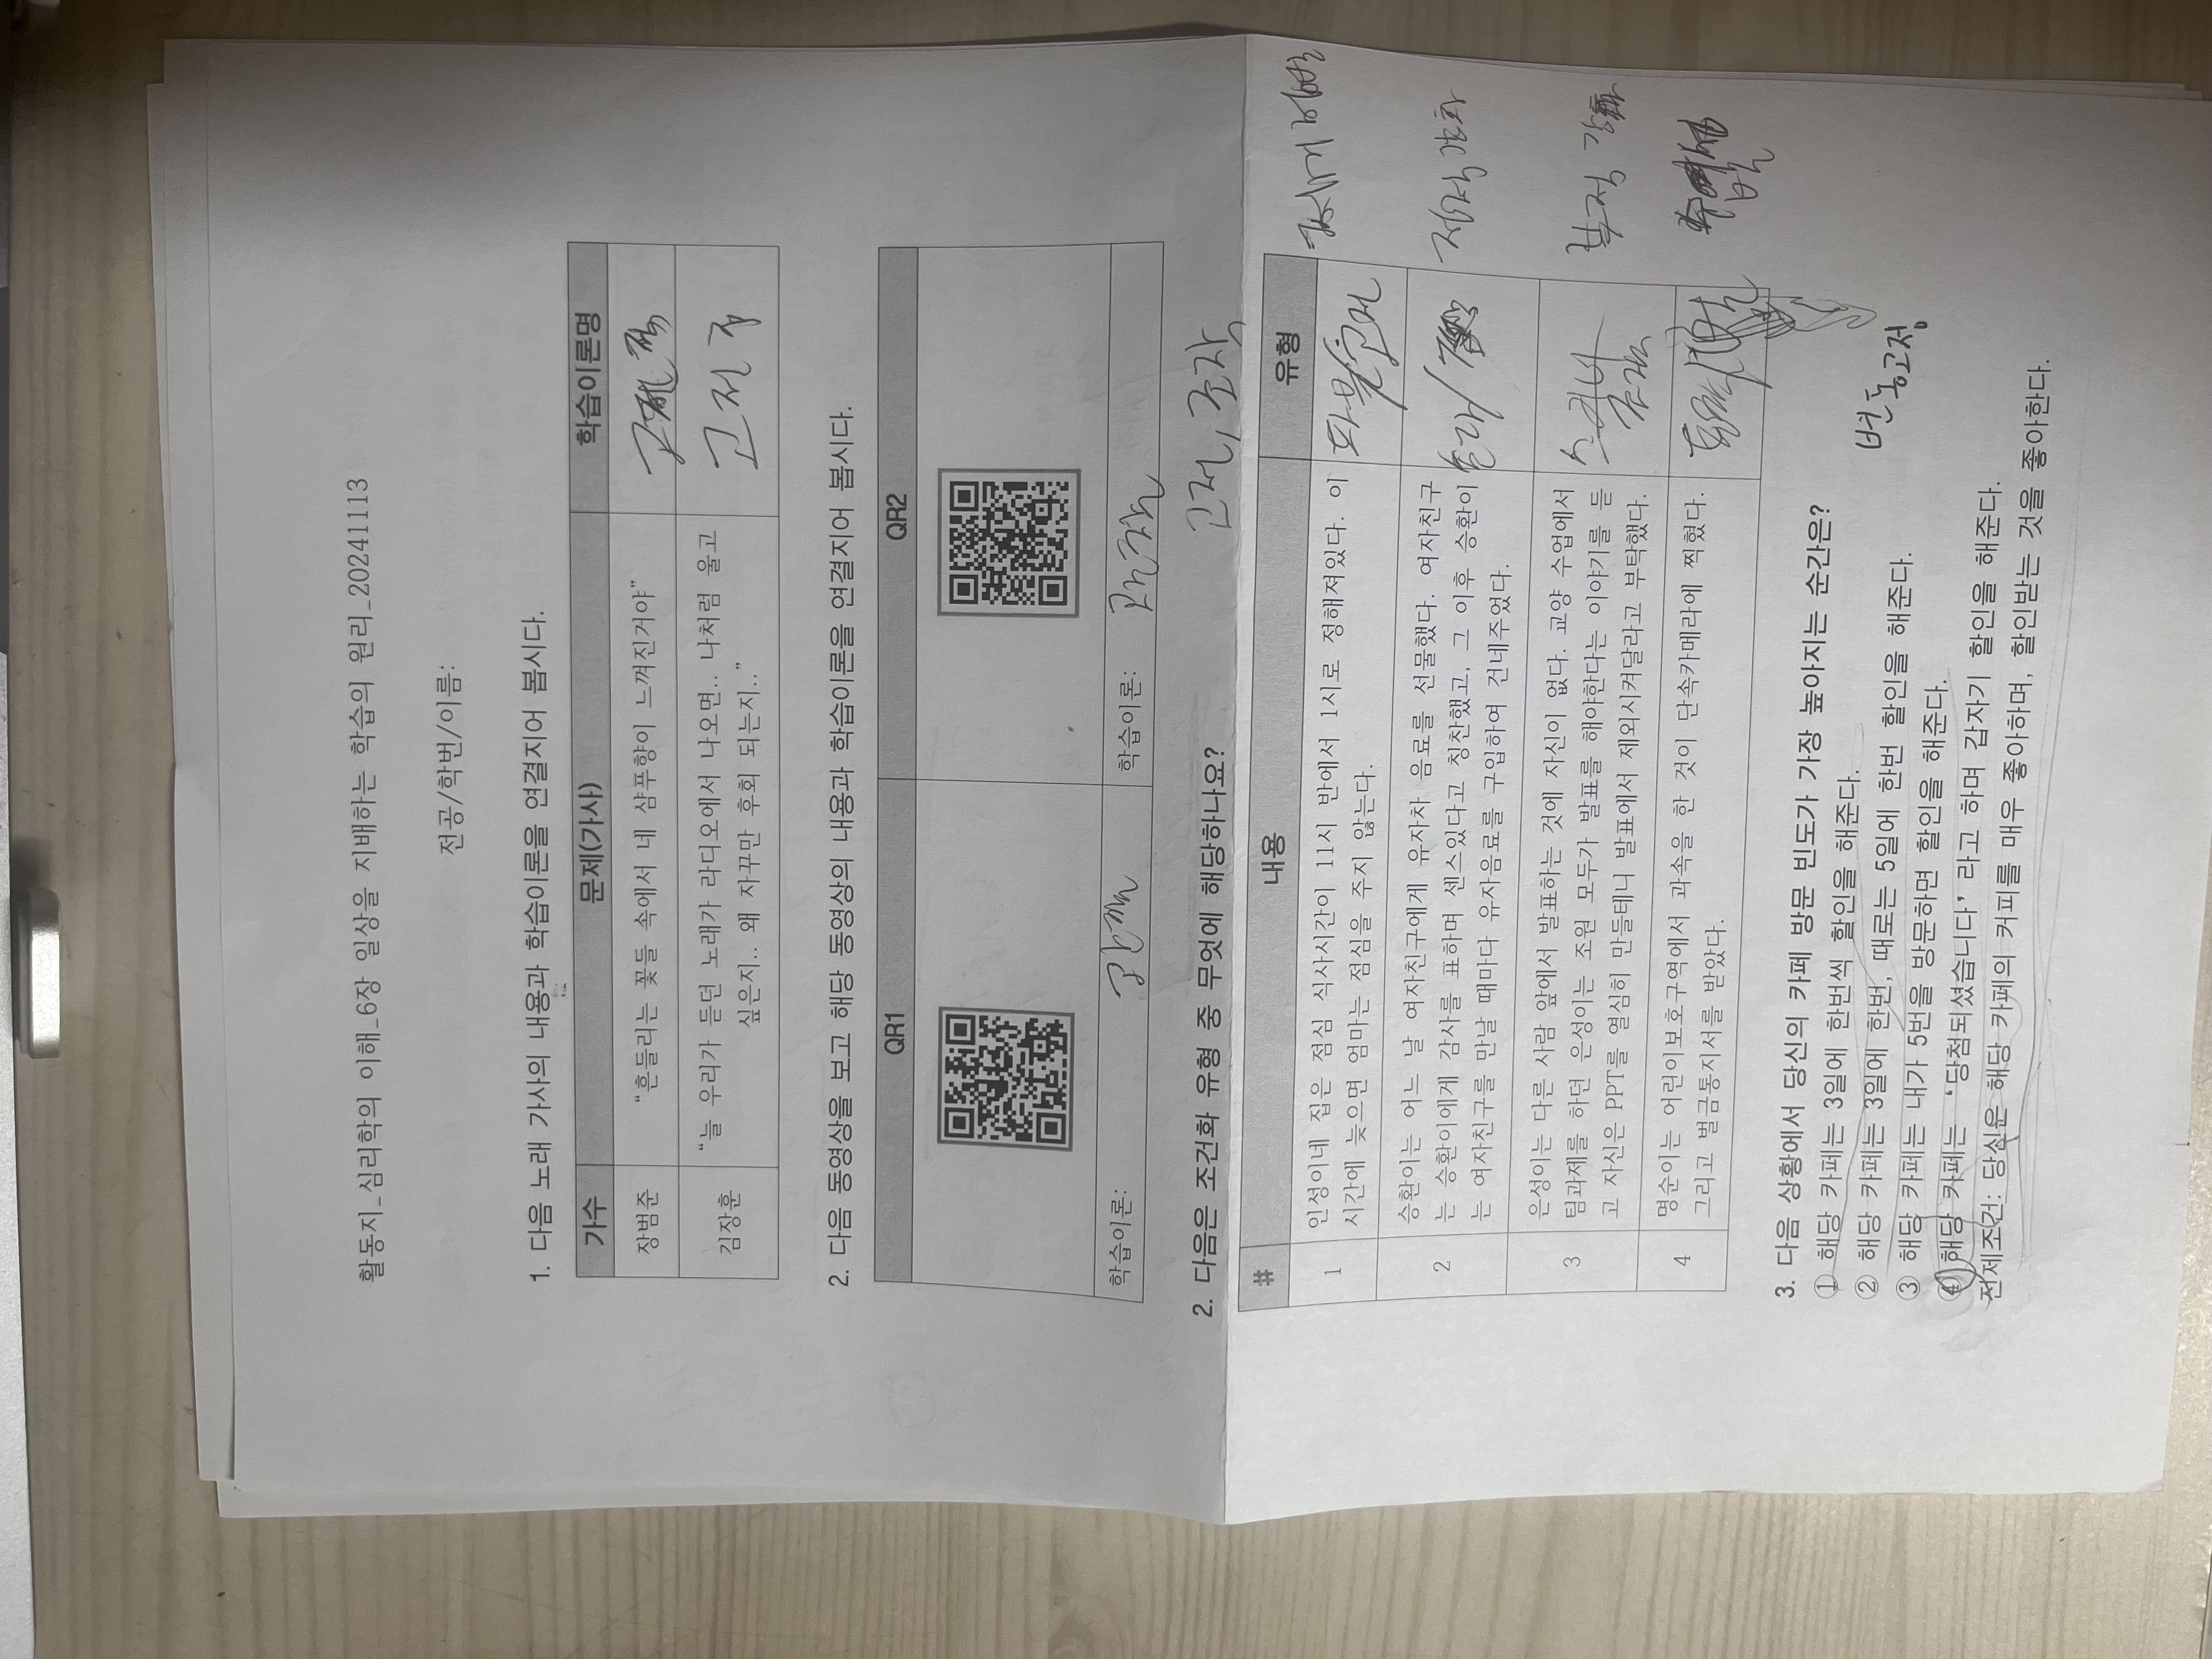 활동지_심리학의 이해_6장 일상을 지배하는 학습의 원리_20241113
전공/학번/이름:
1. 다음 노래 가사의 내용과 학습이론을 연결지어 봅시다.
가수 문제(가사) 학습이론명
장범준 “흔들리는 꽃들 속에서 네 샴푸향이 느껴진거야”
김장훈 “늘 우리가 듣던 노래가 라디오에서 나오면.. 나처럼 울고
싶은지.. 왜 자꾸만 후회 되는지..” 고전
2. 다음 동영상을 보고 해당 동영상의 내용과 학습이론을 연결지어 봅시다.
QR1 QR2
학습이론: 학습이론:
고전, 조작
2. 다음은 조건화 유형 중 무엇에 해당하나요?
# 내용 유형
1 인성이네 집은 점심 식사시간이 11시 반에서 1시로 정해져있다. 이
시간에 늦으면 엄마는 점심을 주지 않는다.
2 승환이는 어느 날 여자친구에게 유자차 음료를 선물했다. 여자친구
는 승환이에게 감사를 표하며 센스있다고 칭찬했고, 그 이후 승환이
는 여자친구를 만날 때마다 유자음료를 구입하여 건네주었다.
정적 강화
3 은성이는 다른 사람 앞에서 발표하는 것에 자신이 없다. 교양 수업에서
팀과제를 하던 은성이는 조원 모두가 발표를 해야한다는 이야기를 듣
고 자신은 PPT를 열심히 만들테니 발표에서 제외시켜달라고 부탁했다.
부적 강화
4 명순이는 어린이보호구역에서 과속을 한 것이 단속카메라에 찍혔다.
그리고 벌금통지서를 받았다.
3. 다음 상황에서 당신의 카페 방문 빈도가 가장 높아지는 순간은?
① 해당 카페는 3일에 한번씩 할인을 해준다.
변동 고정
② 해당 카페는 3일에 한번, 때로는 5일에 한번 할인을 해준다.
③ 해당 카페는 내가 5번을 방문하면 할인을 해준다.
④ 해당 카페는 ‘당첨되셨습니다’ 라고 하며 갑자기 할인을 해준다.
전제조건: 당신은 해당 카페의 커피를 매우 좋아하며, 할인받는 것을 좋아한다.